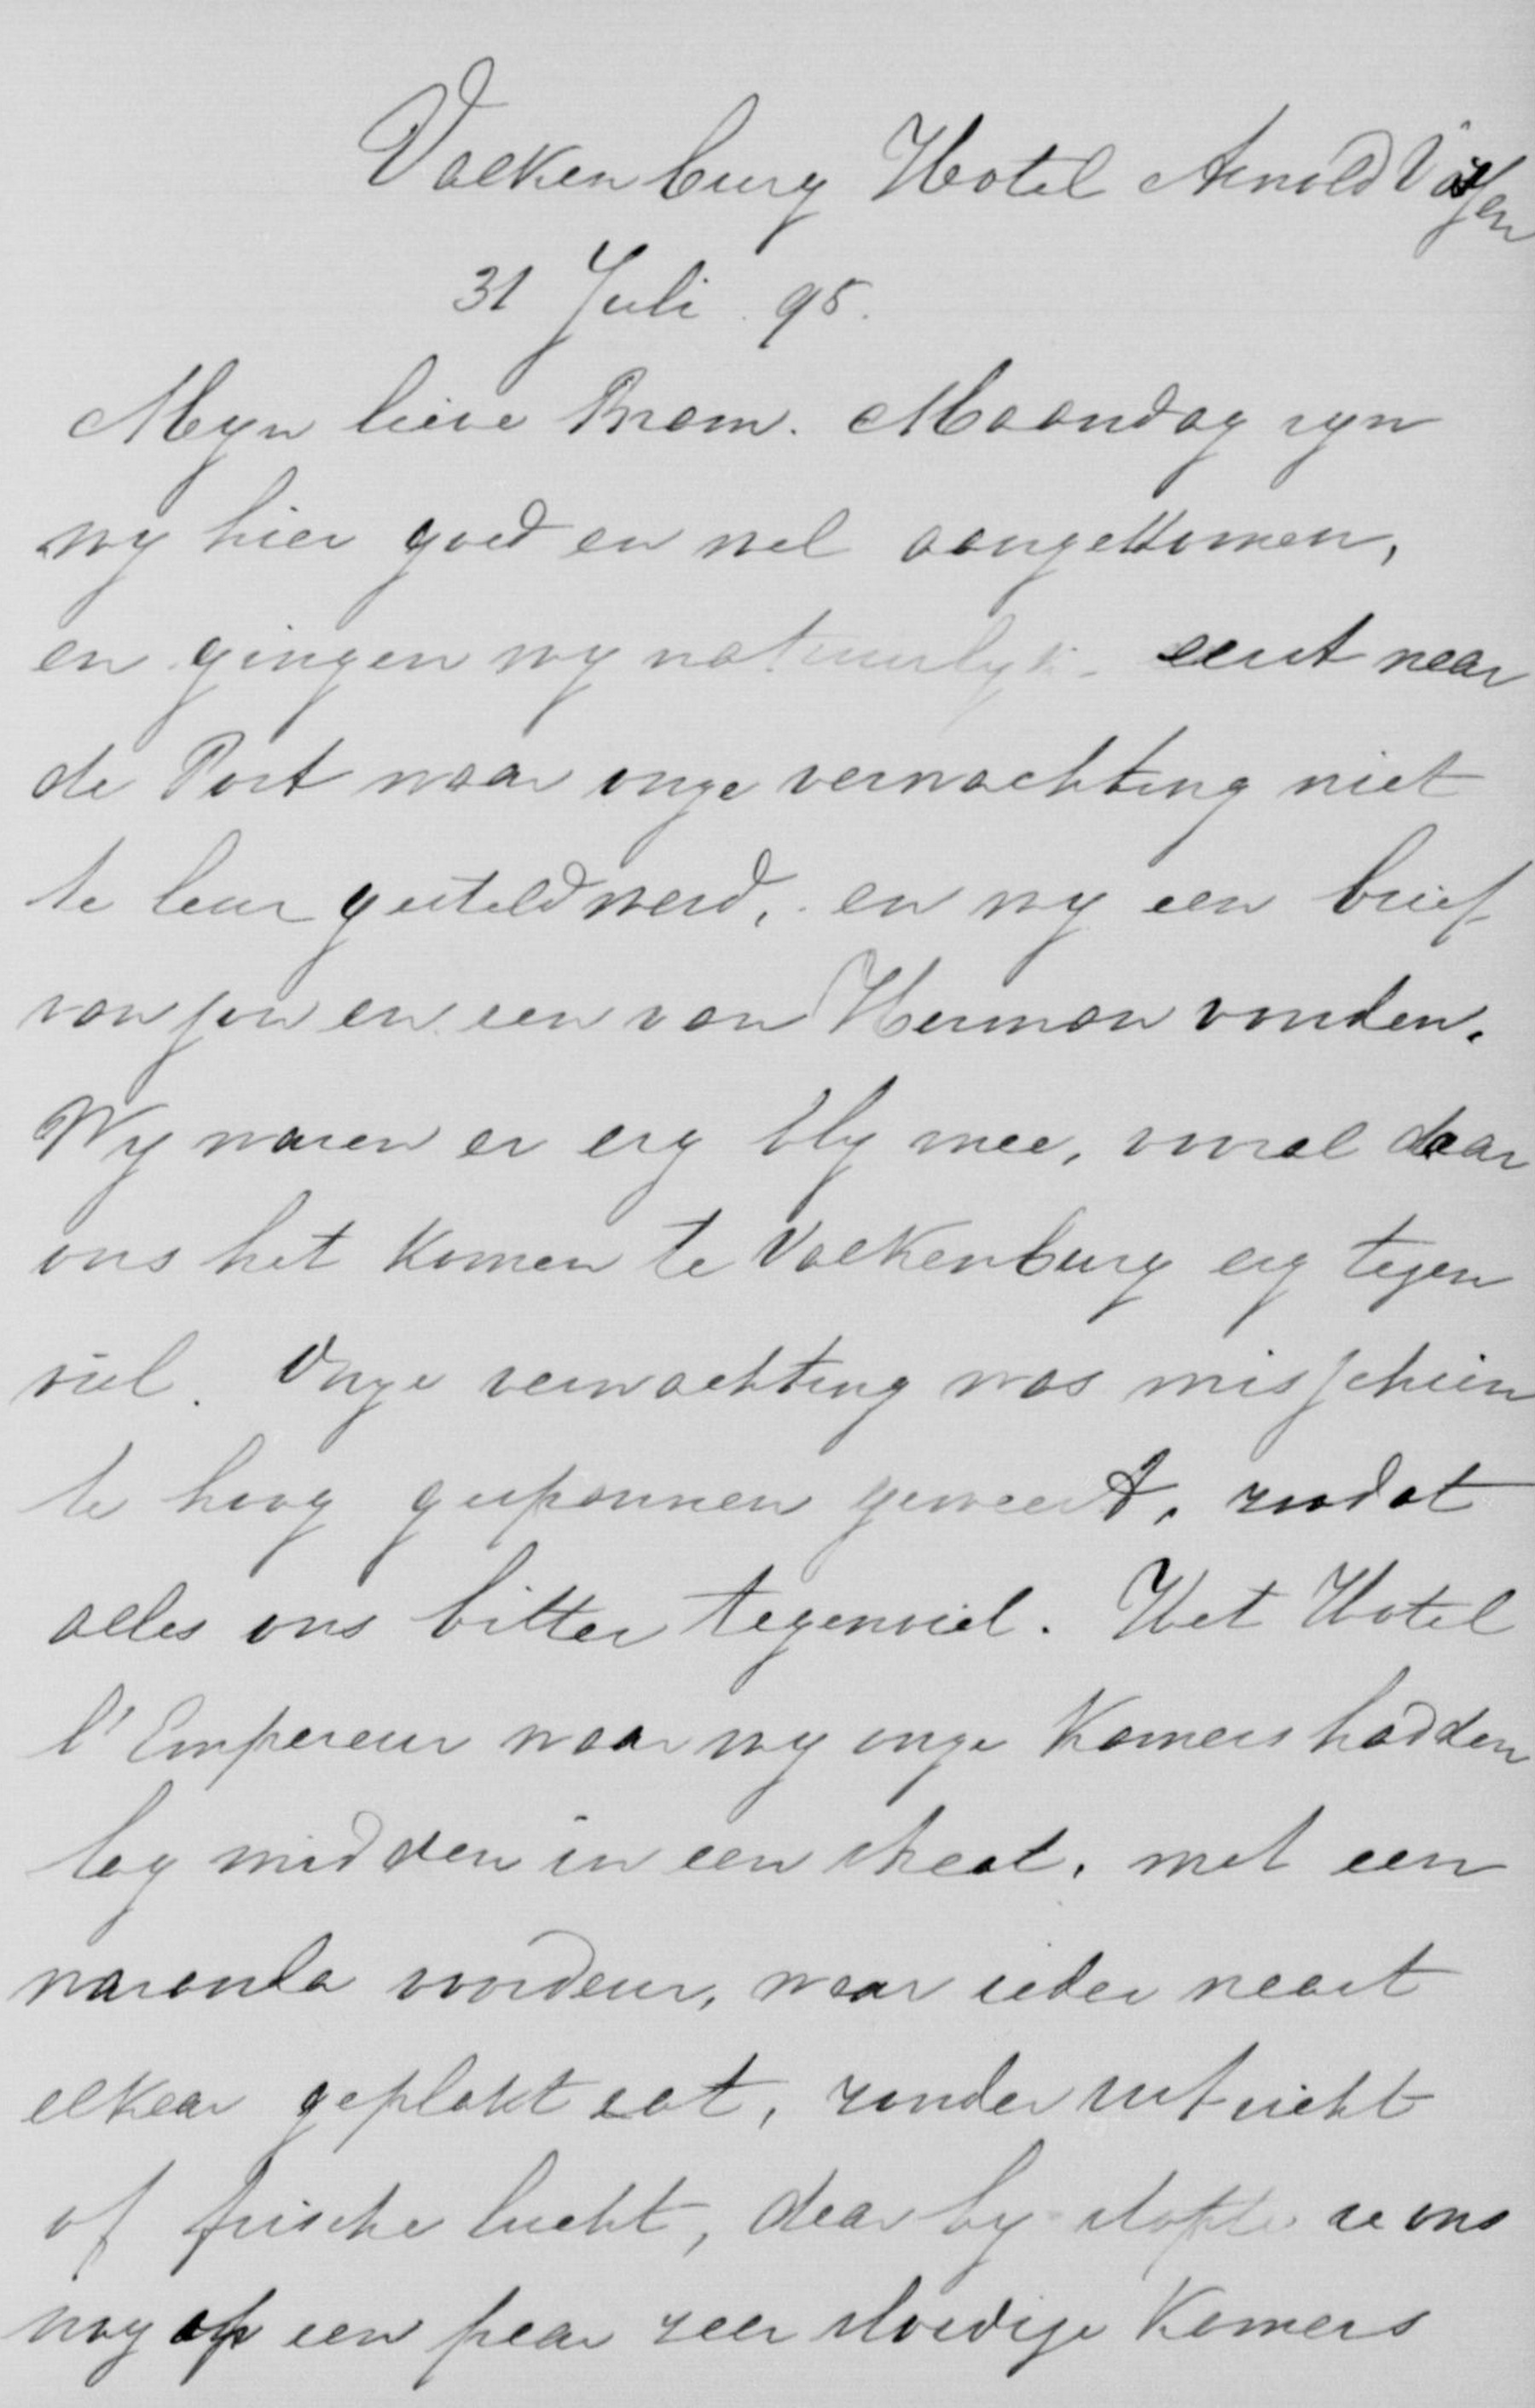 Valkenburg Hotel Arnold Vossen
31 Juli 95.
Myn lieve Bram. Maandag zyn
wy hier goed en wel aangekomen,
en gingen wy natuurlyk eerst naar
de Post waar onze verwachting niet
te leur gesteld werd, en wy een brief
van jou en een van Herman vonden.
Wy waren er erg bly mee, vooral daar
ons het komen te Valkenburg erg tegen
viel. Onze verwachting was misschien
te hoog gespannen geweest, zoodat
alles ons bitter tegenviel. Het Hotel
l'Empereur waar wy onze Kamers hadden
lag midden in een straat, met een
waranda voordeur, waar ieder naast
elkaar geplakt zat, zonder uitzicht
of frissche lucht, daar by stopte ze ons
nog op een paar zeer stoedige Kamers